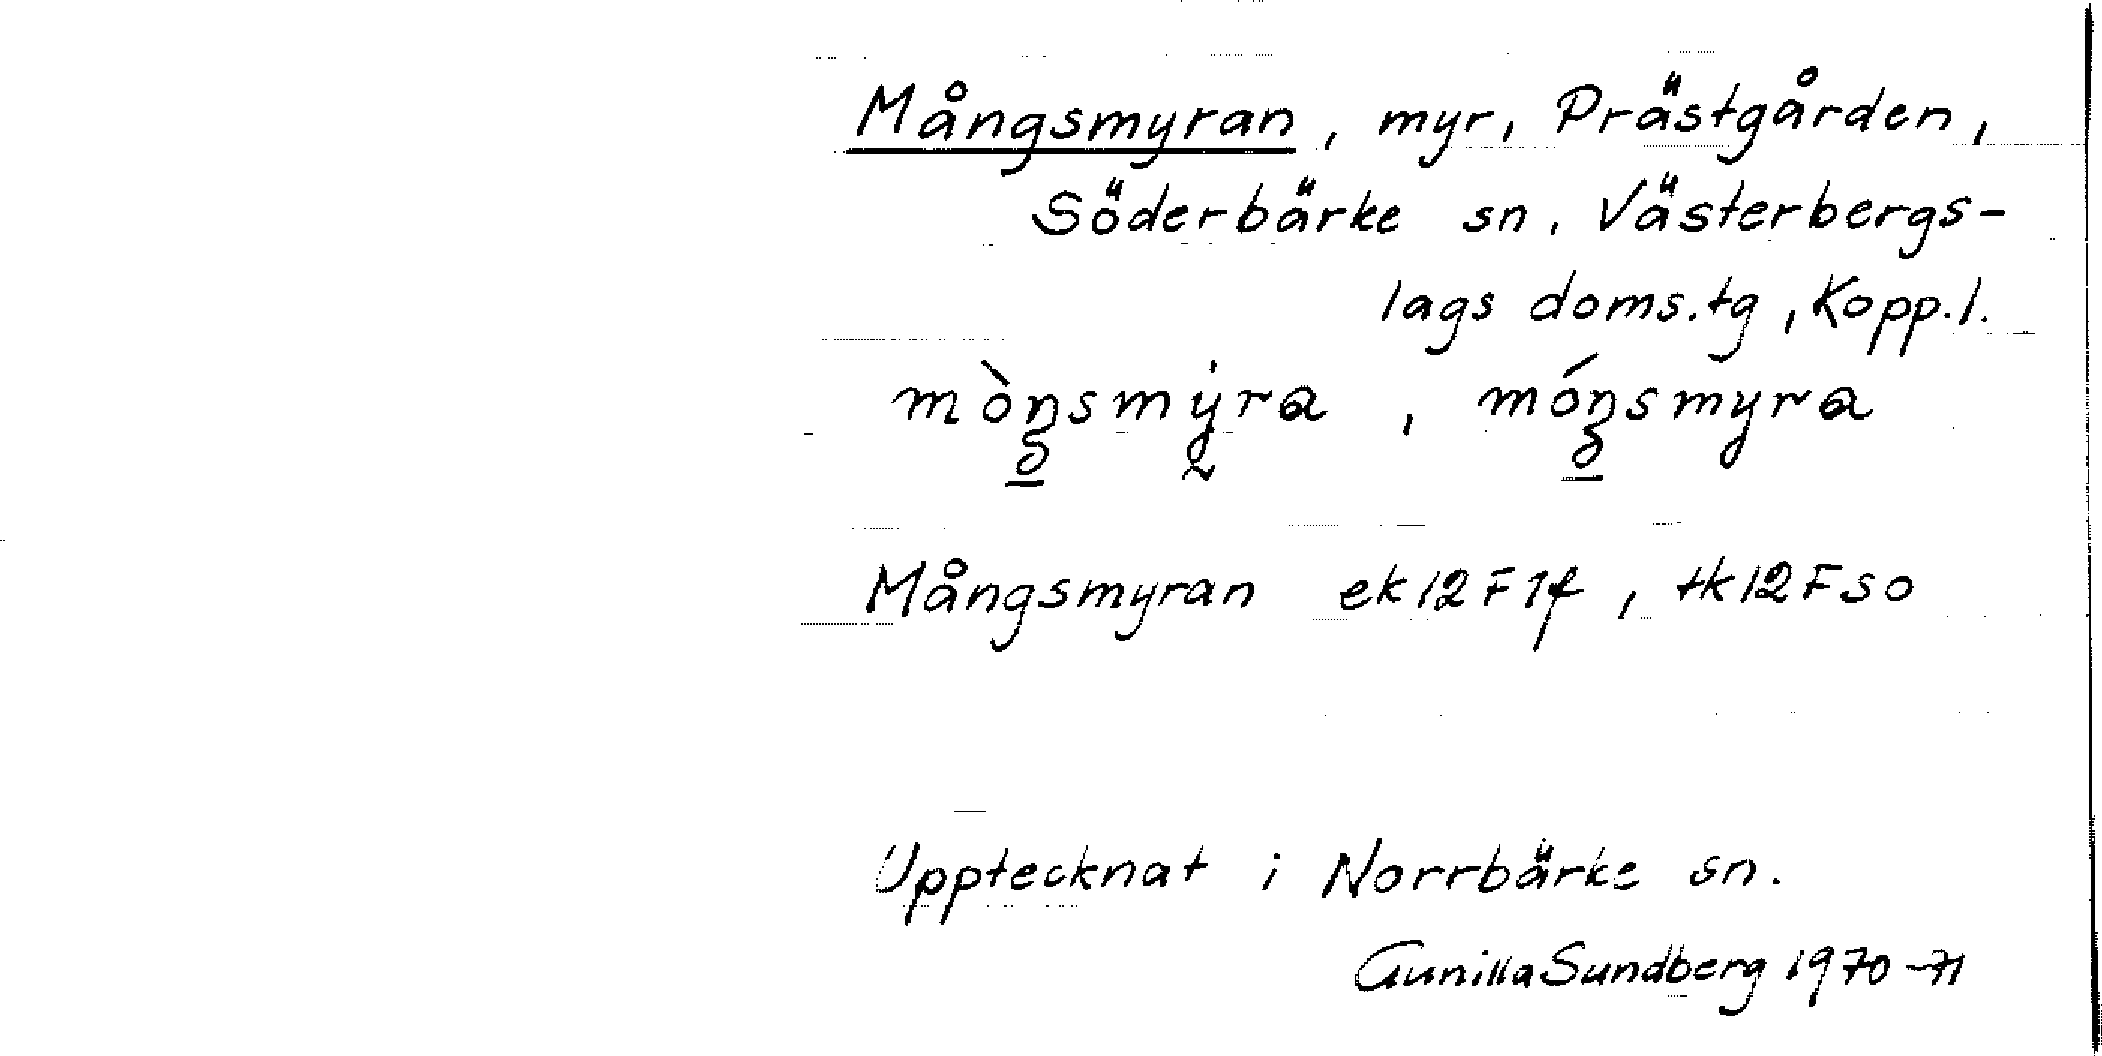 Mångsmyran, myr, Prästgården,
Söderbärke sn, Västerbergs-
lags doms.tg, Kopp.l.
mòŋsmýra, móŋsmyra
Mångsmyran ek 12F1f, tk 12F SO
Upptecknat i Norrbärke sn.
Gunilla Sundberg 1970-71